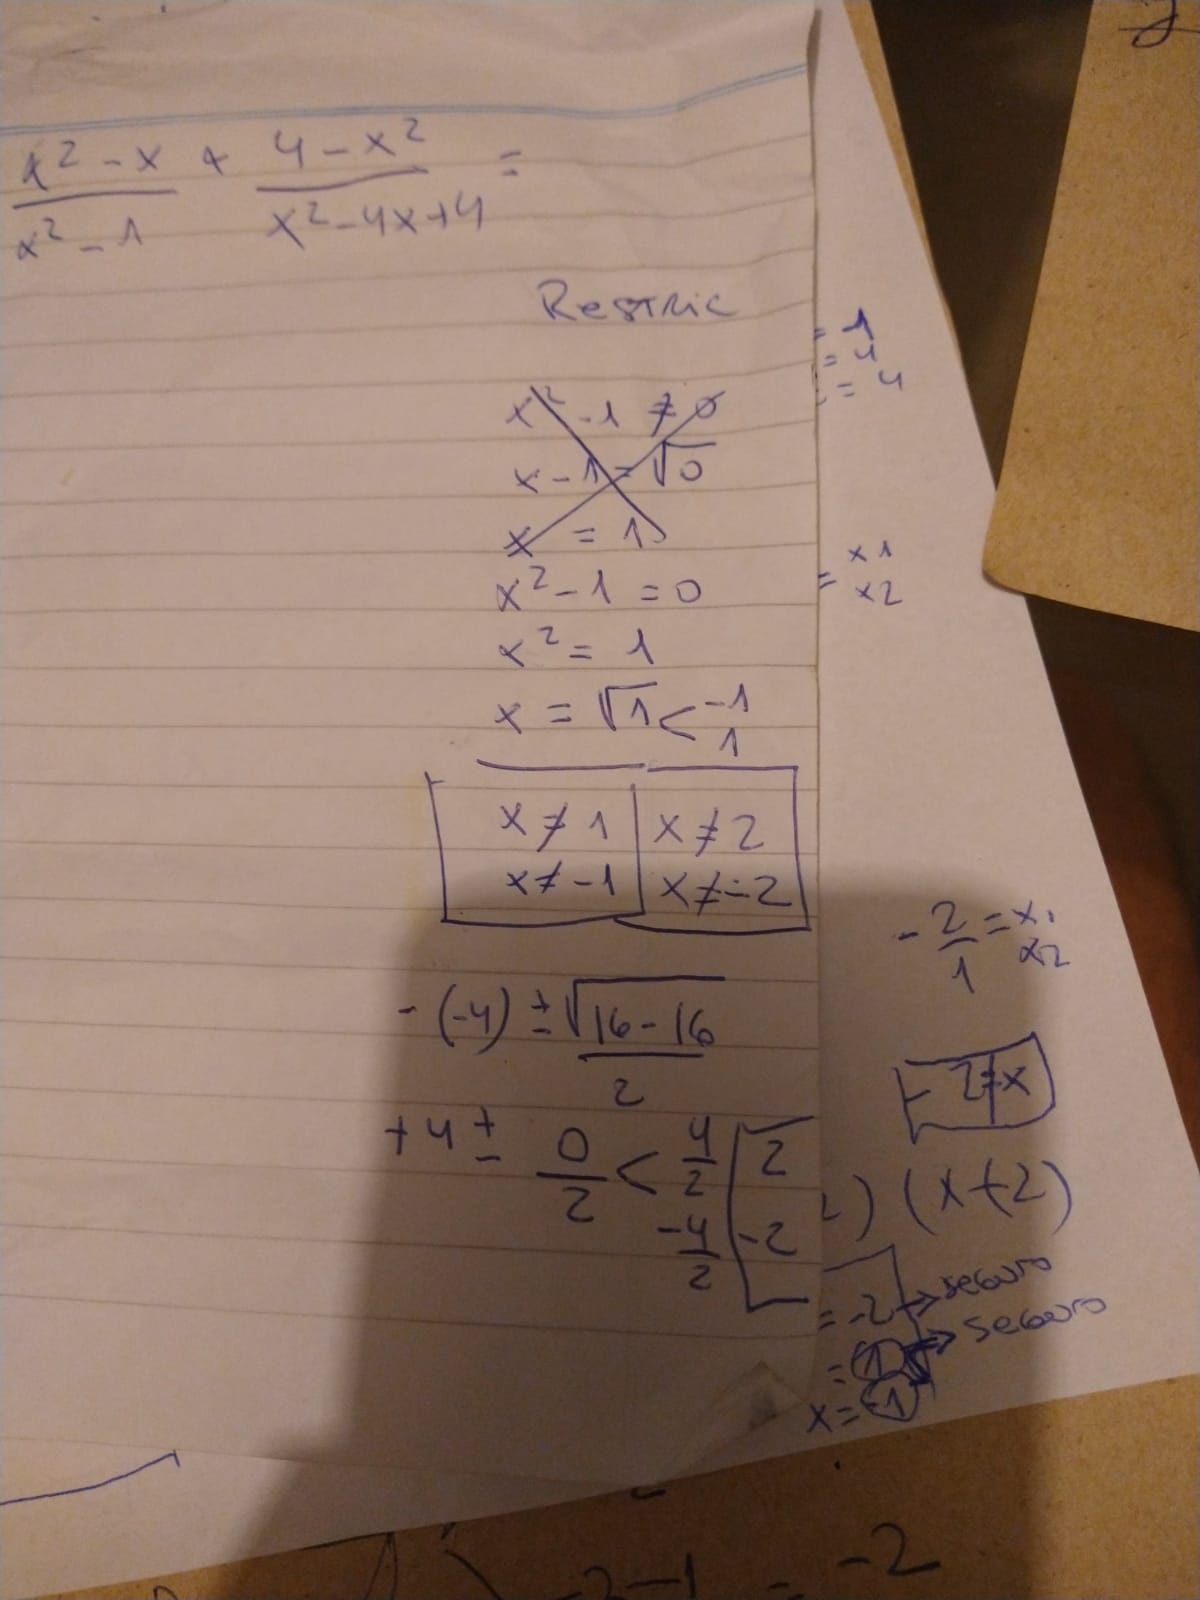 x² - x + 4 - x² =
x² - 1 x² - 4x + 4
Restric
x² - 1 ≠ 0
x - 1 = √0
x = 1
x² - 1 = 0
x² = 1
x = √1 < -1
1
x ≠ 1 x ≠ 2
x ≠ -1 x ≠ -2
- (-4) ± √16 - 16
2
+4 ± 0/2 < 4/2 2
-4/2 -2
= 1
= 4
= 4
= x1
x2
- 2/1 = x1
x2
- 2 ≠ x
) (x+2)
= -2 → seguro
= 1 → seguro
x = -1
-2-1 = -2